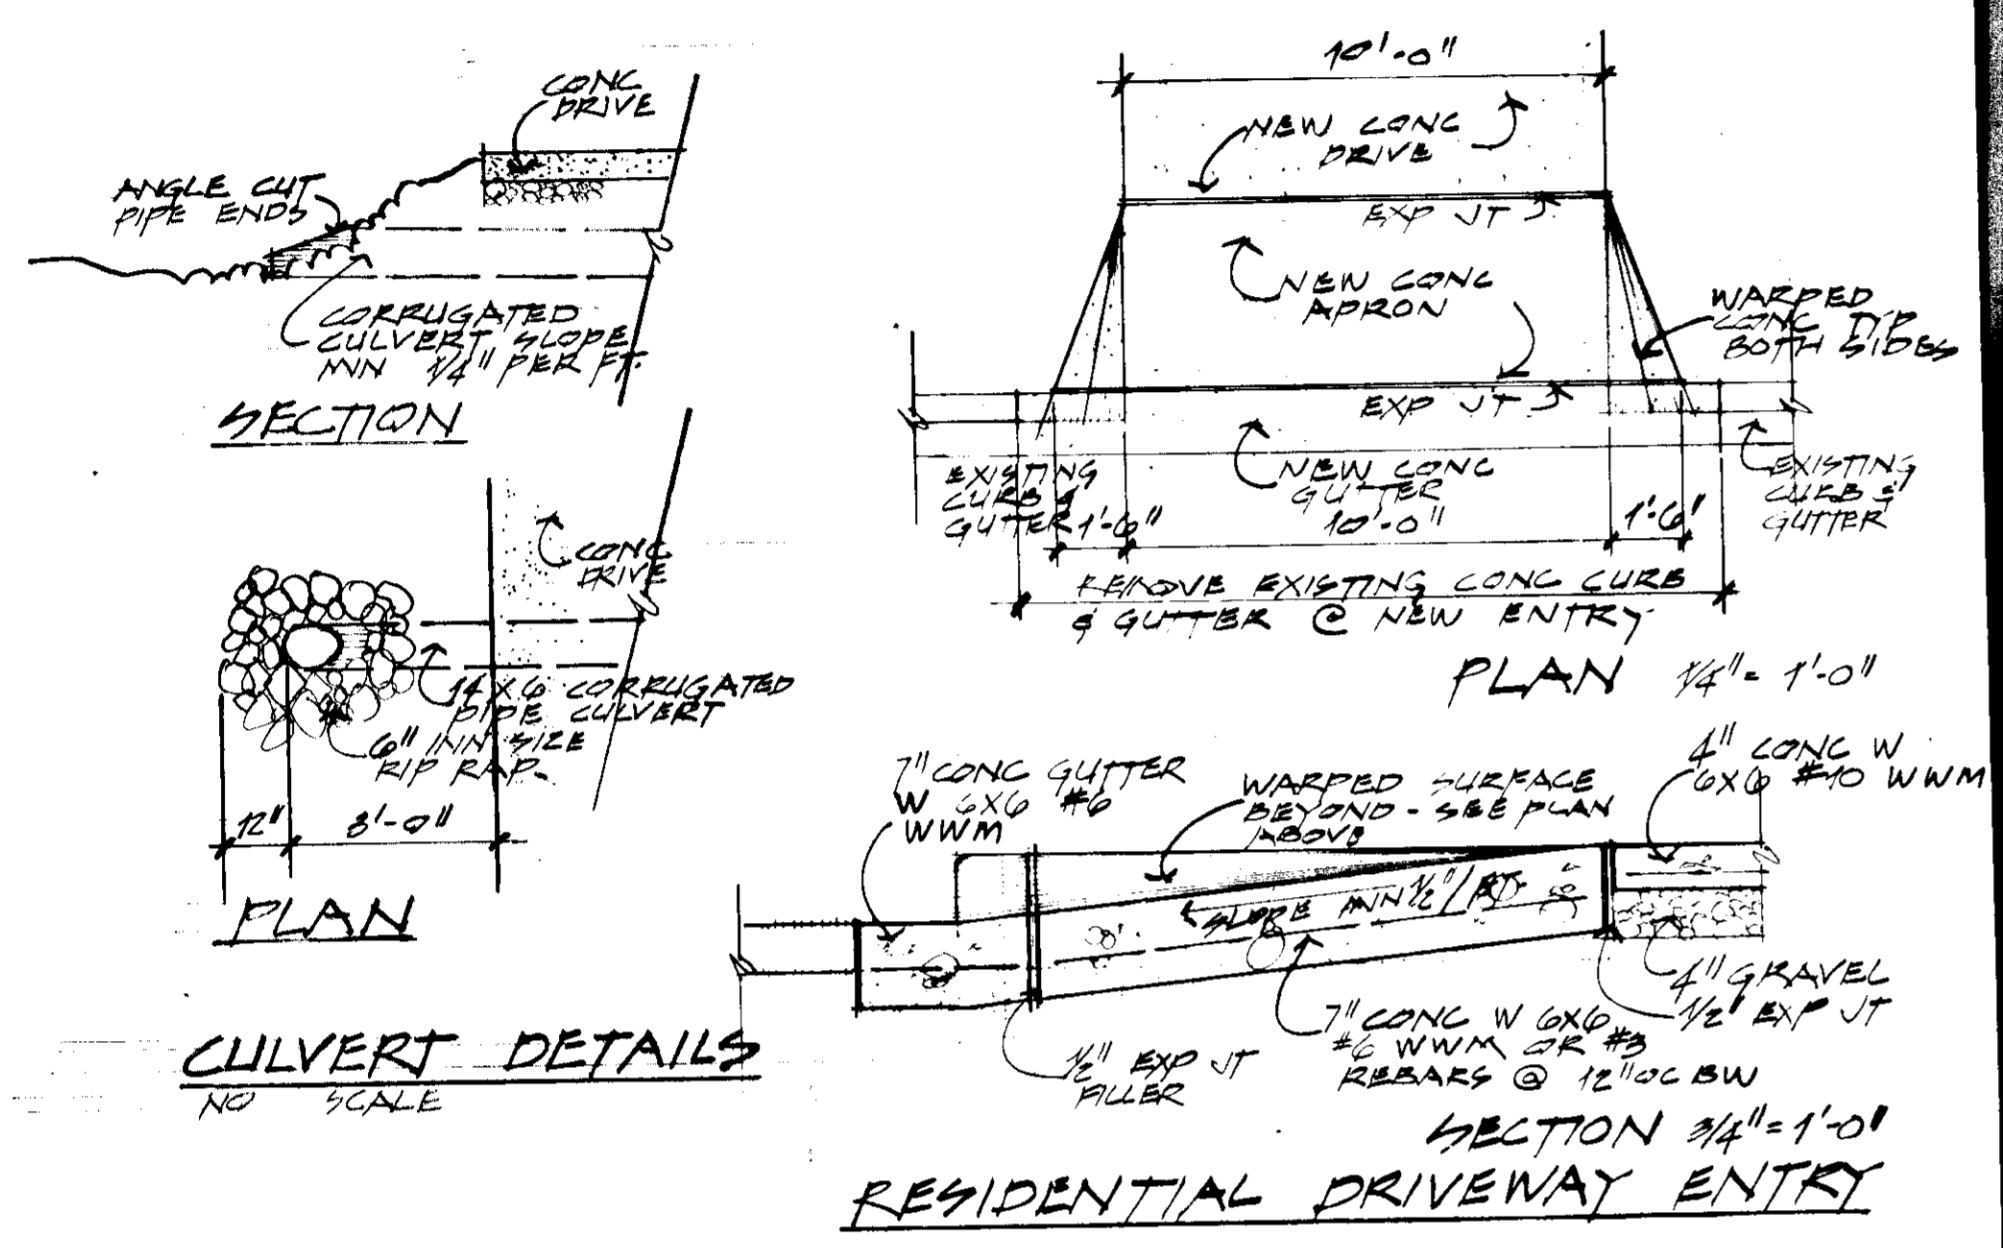 CONC
DRIVE
ANGLE CUT
PIPE ENDS
CORRUGATED
CULVERT SLOPE
MIN 1/4" PER FT.
SECTION
CONC
DRIVE
14 X 6 CORRUGATED
PIPE CULVERT
6" MIN SIZE
RIP RAP.
12"
3'-0"
PLAN
CULVERT DETAILS
NO SCALE
10'-0"
NEW CONC
DRIVE
EXP JT
NEW CONC
APRON
WARPED
CONC TYP
BOTH SIDES
EXP JT
EXISTING
CURB &
GUTTER
NEW CONC
GUTTER
EXISTING
CURB &
GUTTER
1'-6"
10'-0"
1'-6"
REMOVE EXISTING CONC CURB
& GUTTER @ NEW ENTRY
PLAN 1/4" = 1'-0"
7" CONC GUTTER
W 6X6 #6
WWM
WARPED SURFACE
BEYOND - SEE PLAN
ABOVE
4" CONC W
6X6 #10 WWM
SLOPE MIN 1/2"/FT.
4" GRAVEL
1/2" EXP JT
1/2" EXP JT
FILLER
7" CONC W 6X6
#6 WWM OR #3
REBARS @ 12" OC BW
SECTION 3/4" = 1'-0"
RESIDENTIAL DRIVEWAY ENTRY